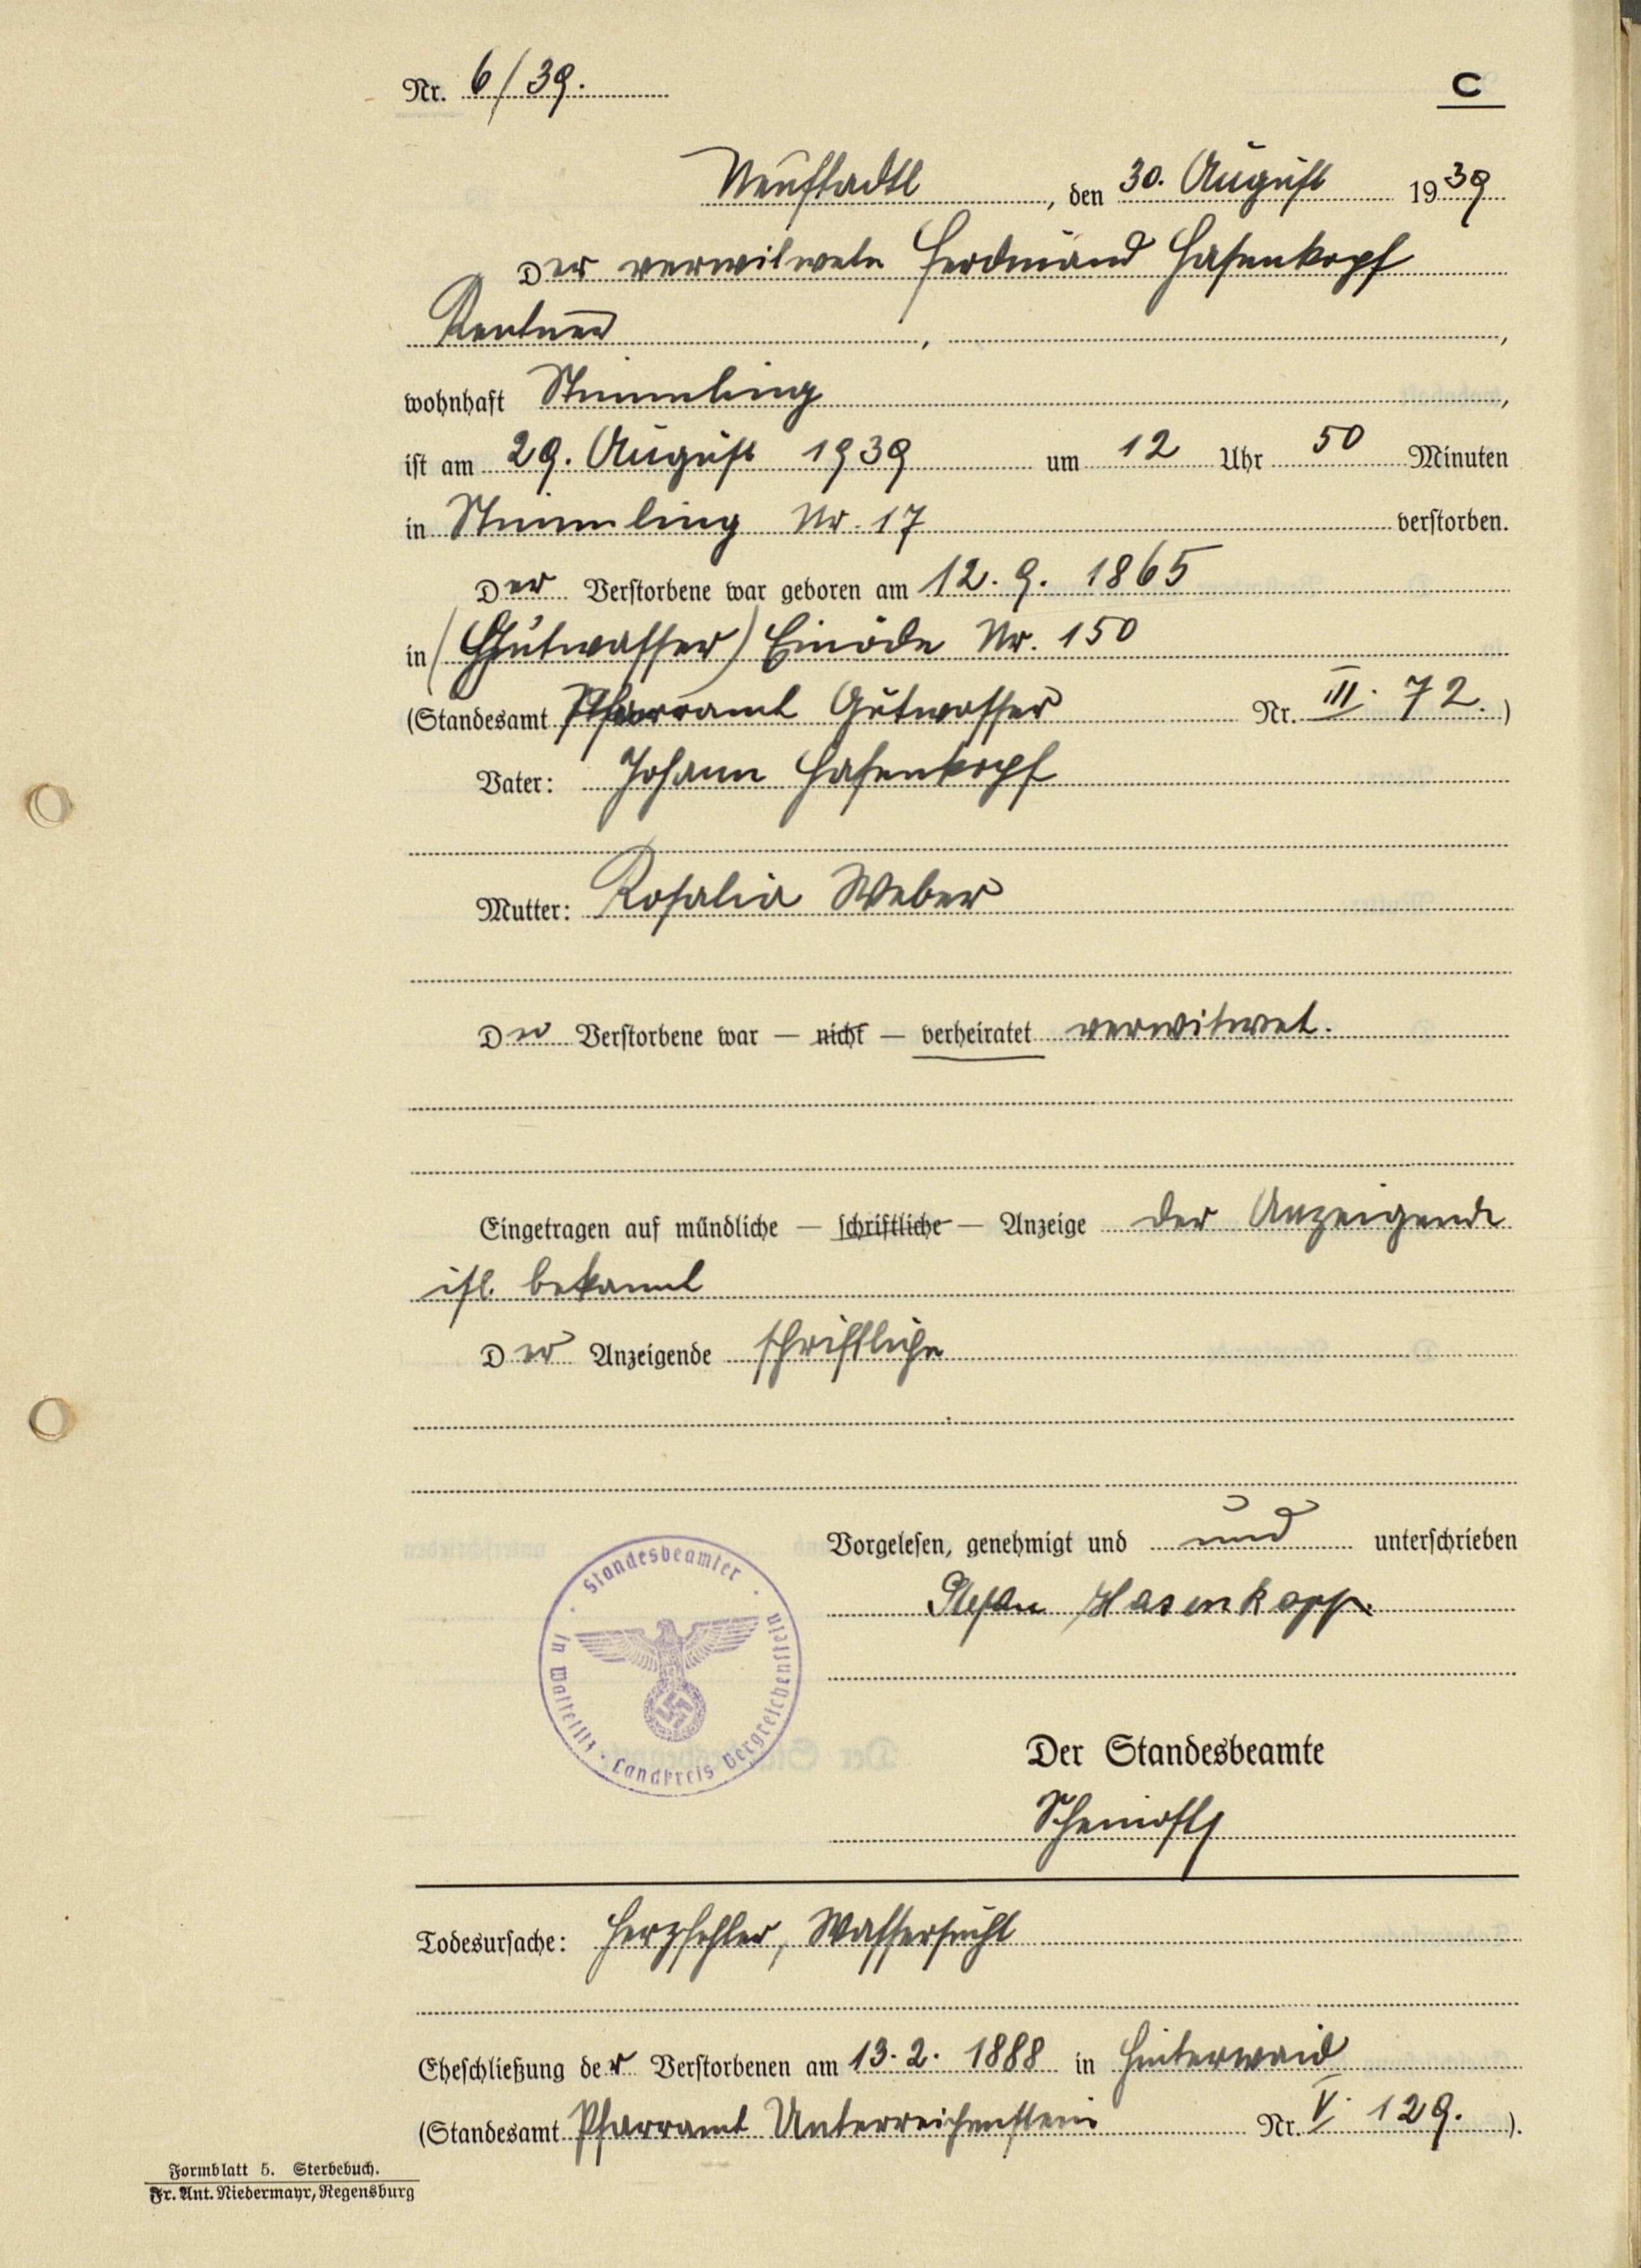 Nr. 6/39.
C
Neustadtl, den 30. August 1939
Der verwitwete Ferdinand Hasenkopf
Rentner, ,
wohnhaft Stimmling,
ist am 29. August 1939 um 12 Uhr 50 Minuten
in Stimmling Nr. 17 verstorben.
Der Verstorbene war geboren am 12. 9. 1865
in (Gutwasser) Einöde Nr. 150
(Standesamt Pfarramt Gutwasser Nr. III. 72.)
Vater: Johann Hasenkopf
Mutter: Rosalia Weber
Der Verstorbene war — nicht — verheiratet verwitwet.
Eingetragen auf mündliche — schriftliche — Anzeige der Anzeigende
ist bekannt
Der Anzeigende schriftliche
Vorgelesen, genehmigt und und unterschrieben
Stefan Hasenkopf
Standesbeamter
in Watetitz · Landkreis Bergreichenstein
Der Standesbeamte
Todesursache: Herzfehler, Wassersucht
Eheschließung der Verstorbenen am 13. 2. 1888 in Hinterwaid
(Standesamt Pfarramt Unterreichenstein Nr. V. 129.).
Formblatt 5. Sterbebuch.
Fr. Ant. Niedermayr, Regensburg